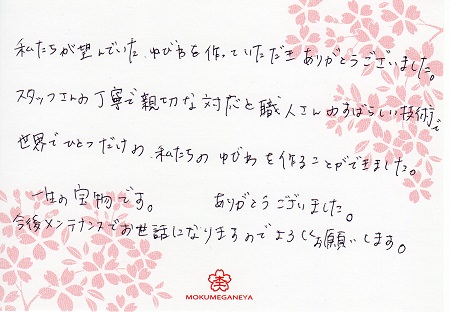 私たちが望んでいた、ゆびわを作っていただきありがとうございました。
スタッフさんの丁寧で親切な対応と職人さんのすばらしい技術で
世界でひとつだけの、私たちのゆびわを作ることができました。
一生の宝物です。 ありがとうございました。
今後メンテナンスでお世話になりますのでよろしくお願いします。
MOKUMEGANEYA